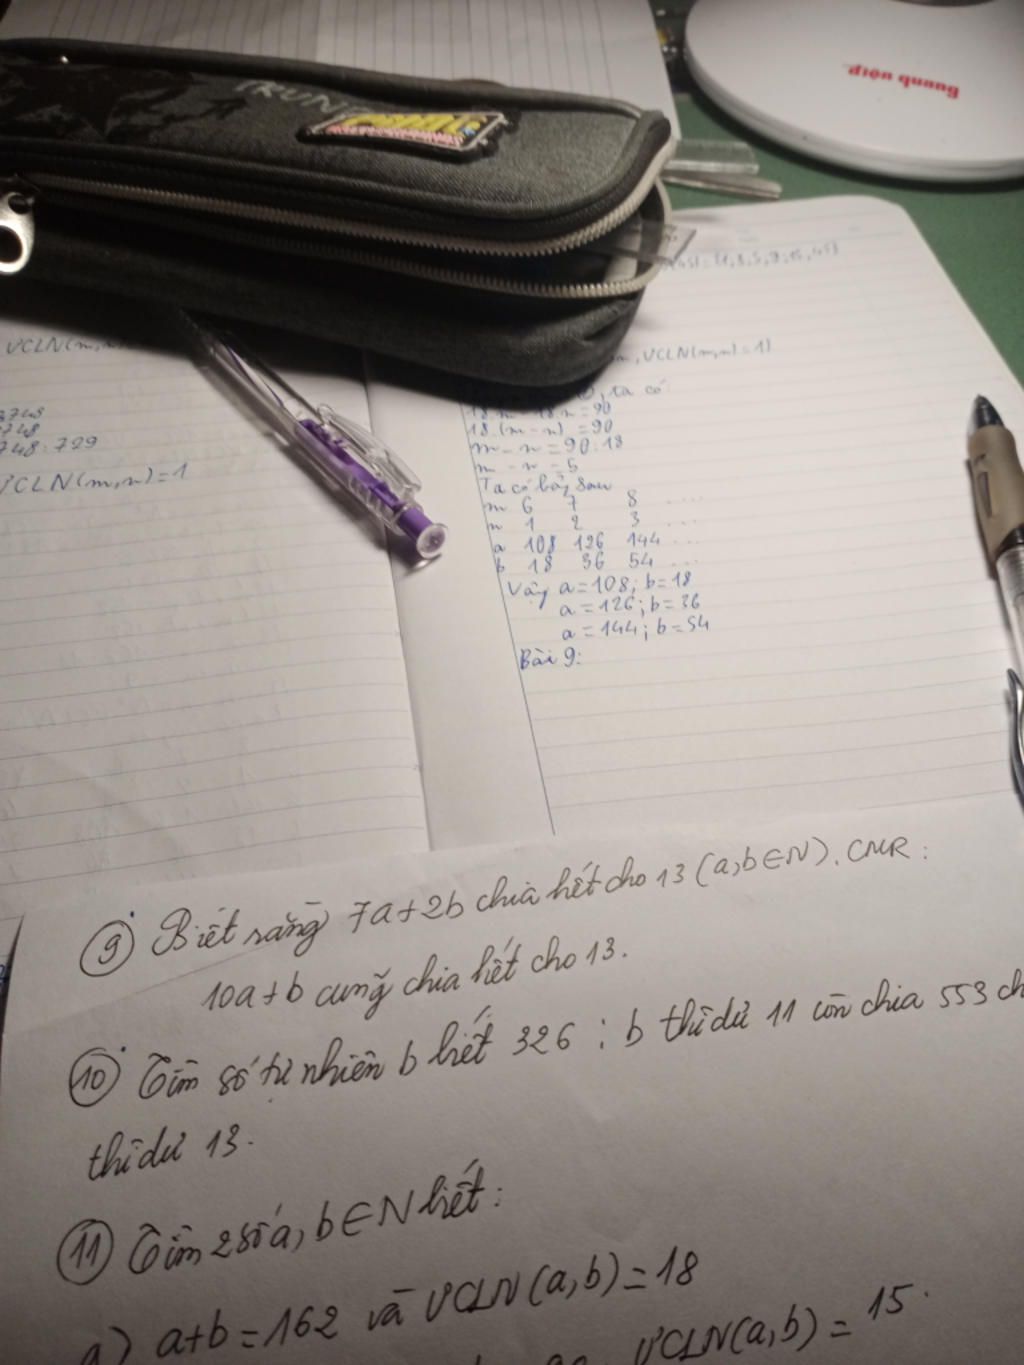 quang nộp
TRUNG
ƯCLN(m,n)
3748
748
748:729
ƯCLN(m,n)=1
(45)={1,3,5,9,15,45}
m, ƯCLN(m,n)=1)
, ta có:
18.m-18.n=90
18.(m-n)=90
m-n=90:18
m-n=5
Ta có bảng sau
m 6 7 8 ...
n 1 2 3 ...
a 108 126 144 ...
b 18 36 54 ...
Vậy a=108; b=18
a=126; b=36
a=144; b=54
Bài 9:
9 Biết rằng 7a+2b chia hết cho 13 (a,b∈N). CMR:
10a+b cũng chia hết cho 13.
10 Tìm số tự nhiên b biết 326 : b thì dư 11 còn chia 553 ch
thì dư 13.
11 Tìm 2 số a, b∈N biết:
a) a+b=162 và ƯCLN(a,b)=18
ƯCLN(a,b)=15.